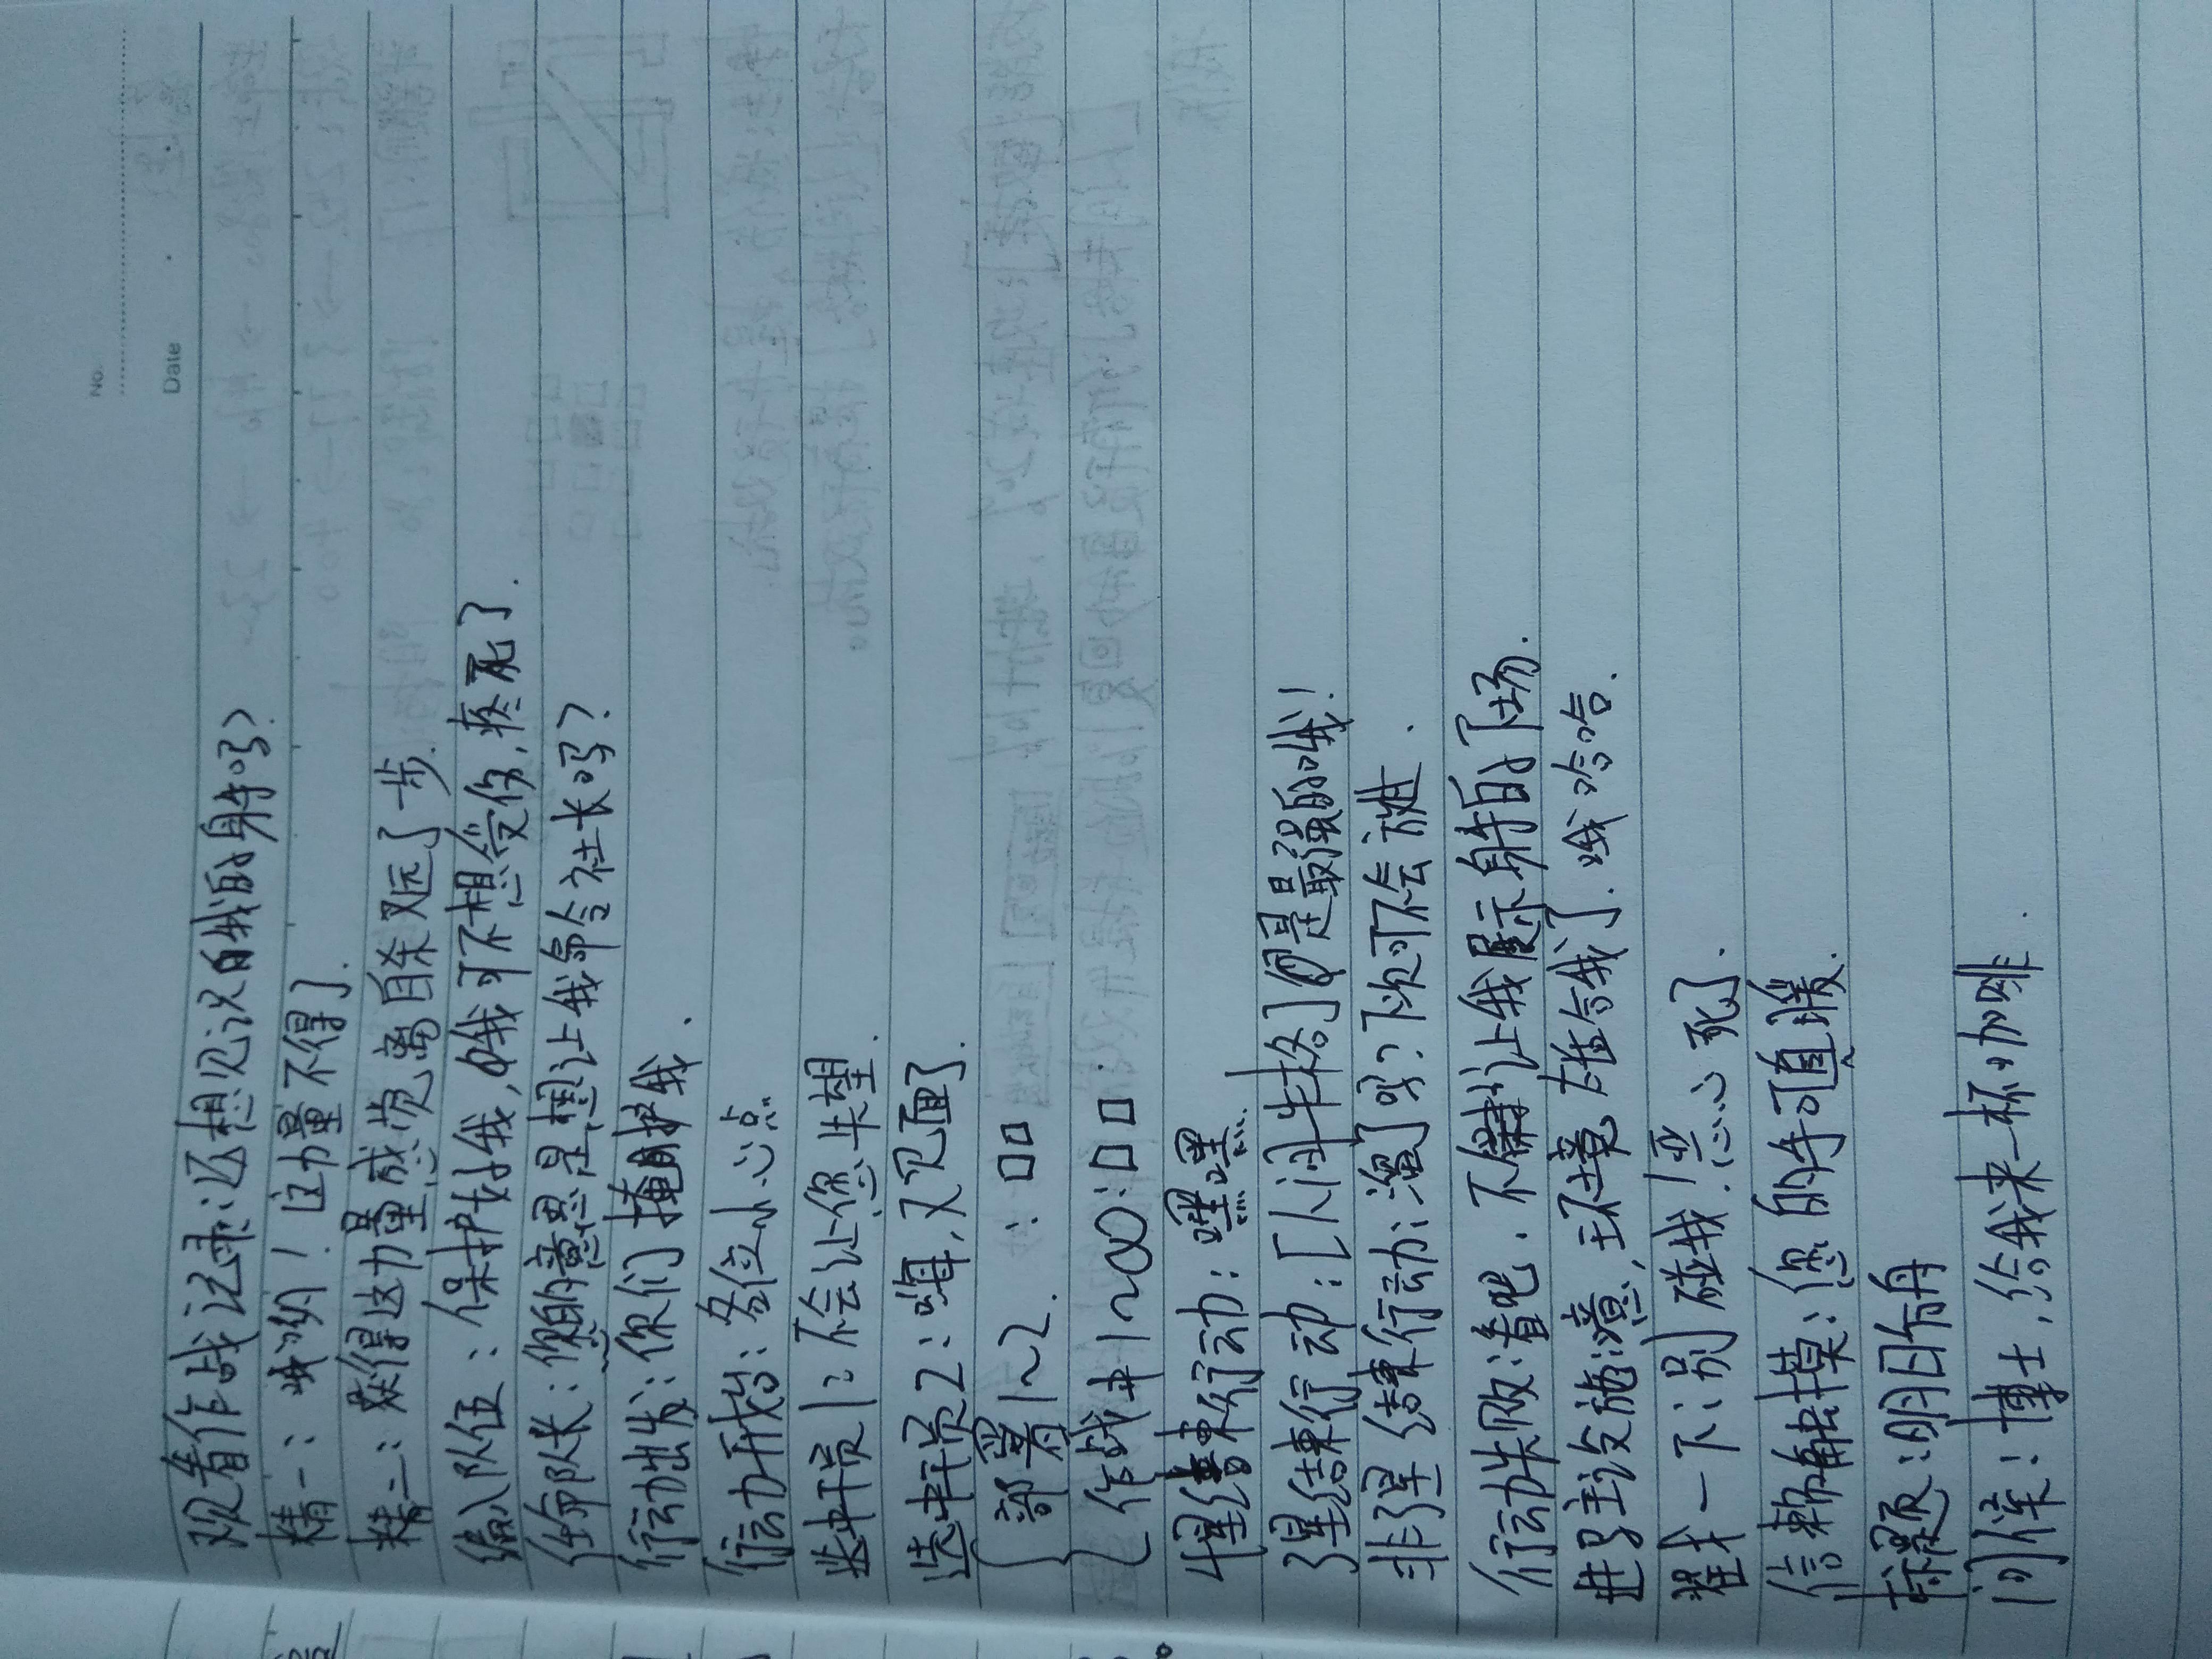 No.
Date
观看作战记录：还想见识我的身手吗？
精一：哦哟！这力量不得了.
精二：获得这力量感觉离自杀又远了一步.
编入队伍：保护好我，我可不想受伤，疼死了.
任命队长：您的意思是想让我命令社长吗？
行动出发：你们掩护我.
行动开始：各位小心点.
选中干员1：不会让您失望.
选中干员2：嗨，又见面了.
部署1~2：□□
作战中1~∞：□□
4星结束行动：嘿嘿
3星结束行动：[人间失格]可是最强的哦！
非3星结束行动：溜了哦？下次可不会让
行动失败：看吧，不让我展示身手的下场.
进驻设施：噫，环境在给我了.哦哈哈.
戳一下：别碰我！恶心死了.
信赖触摸：您的手可真暖.
标题：明日方舟
问候：博士，给我来一杯咖啡.